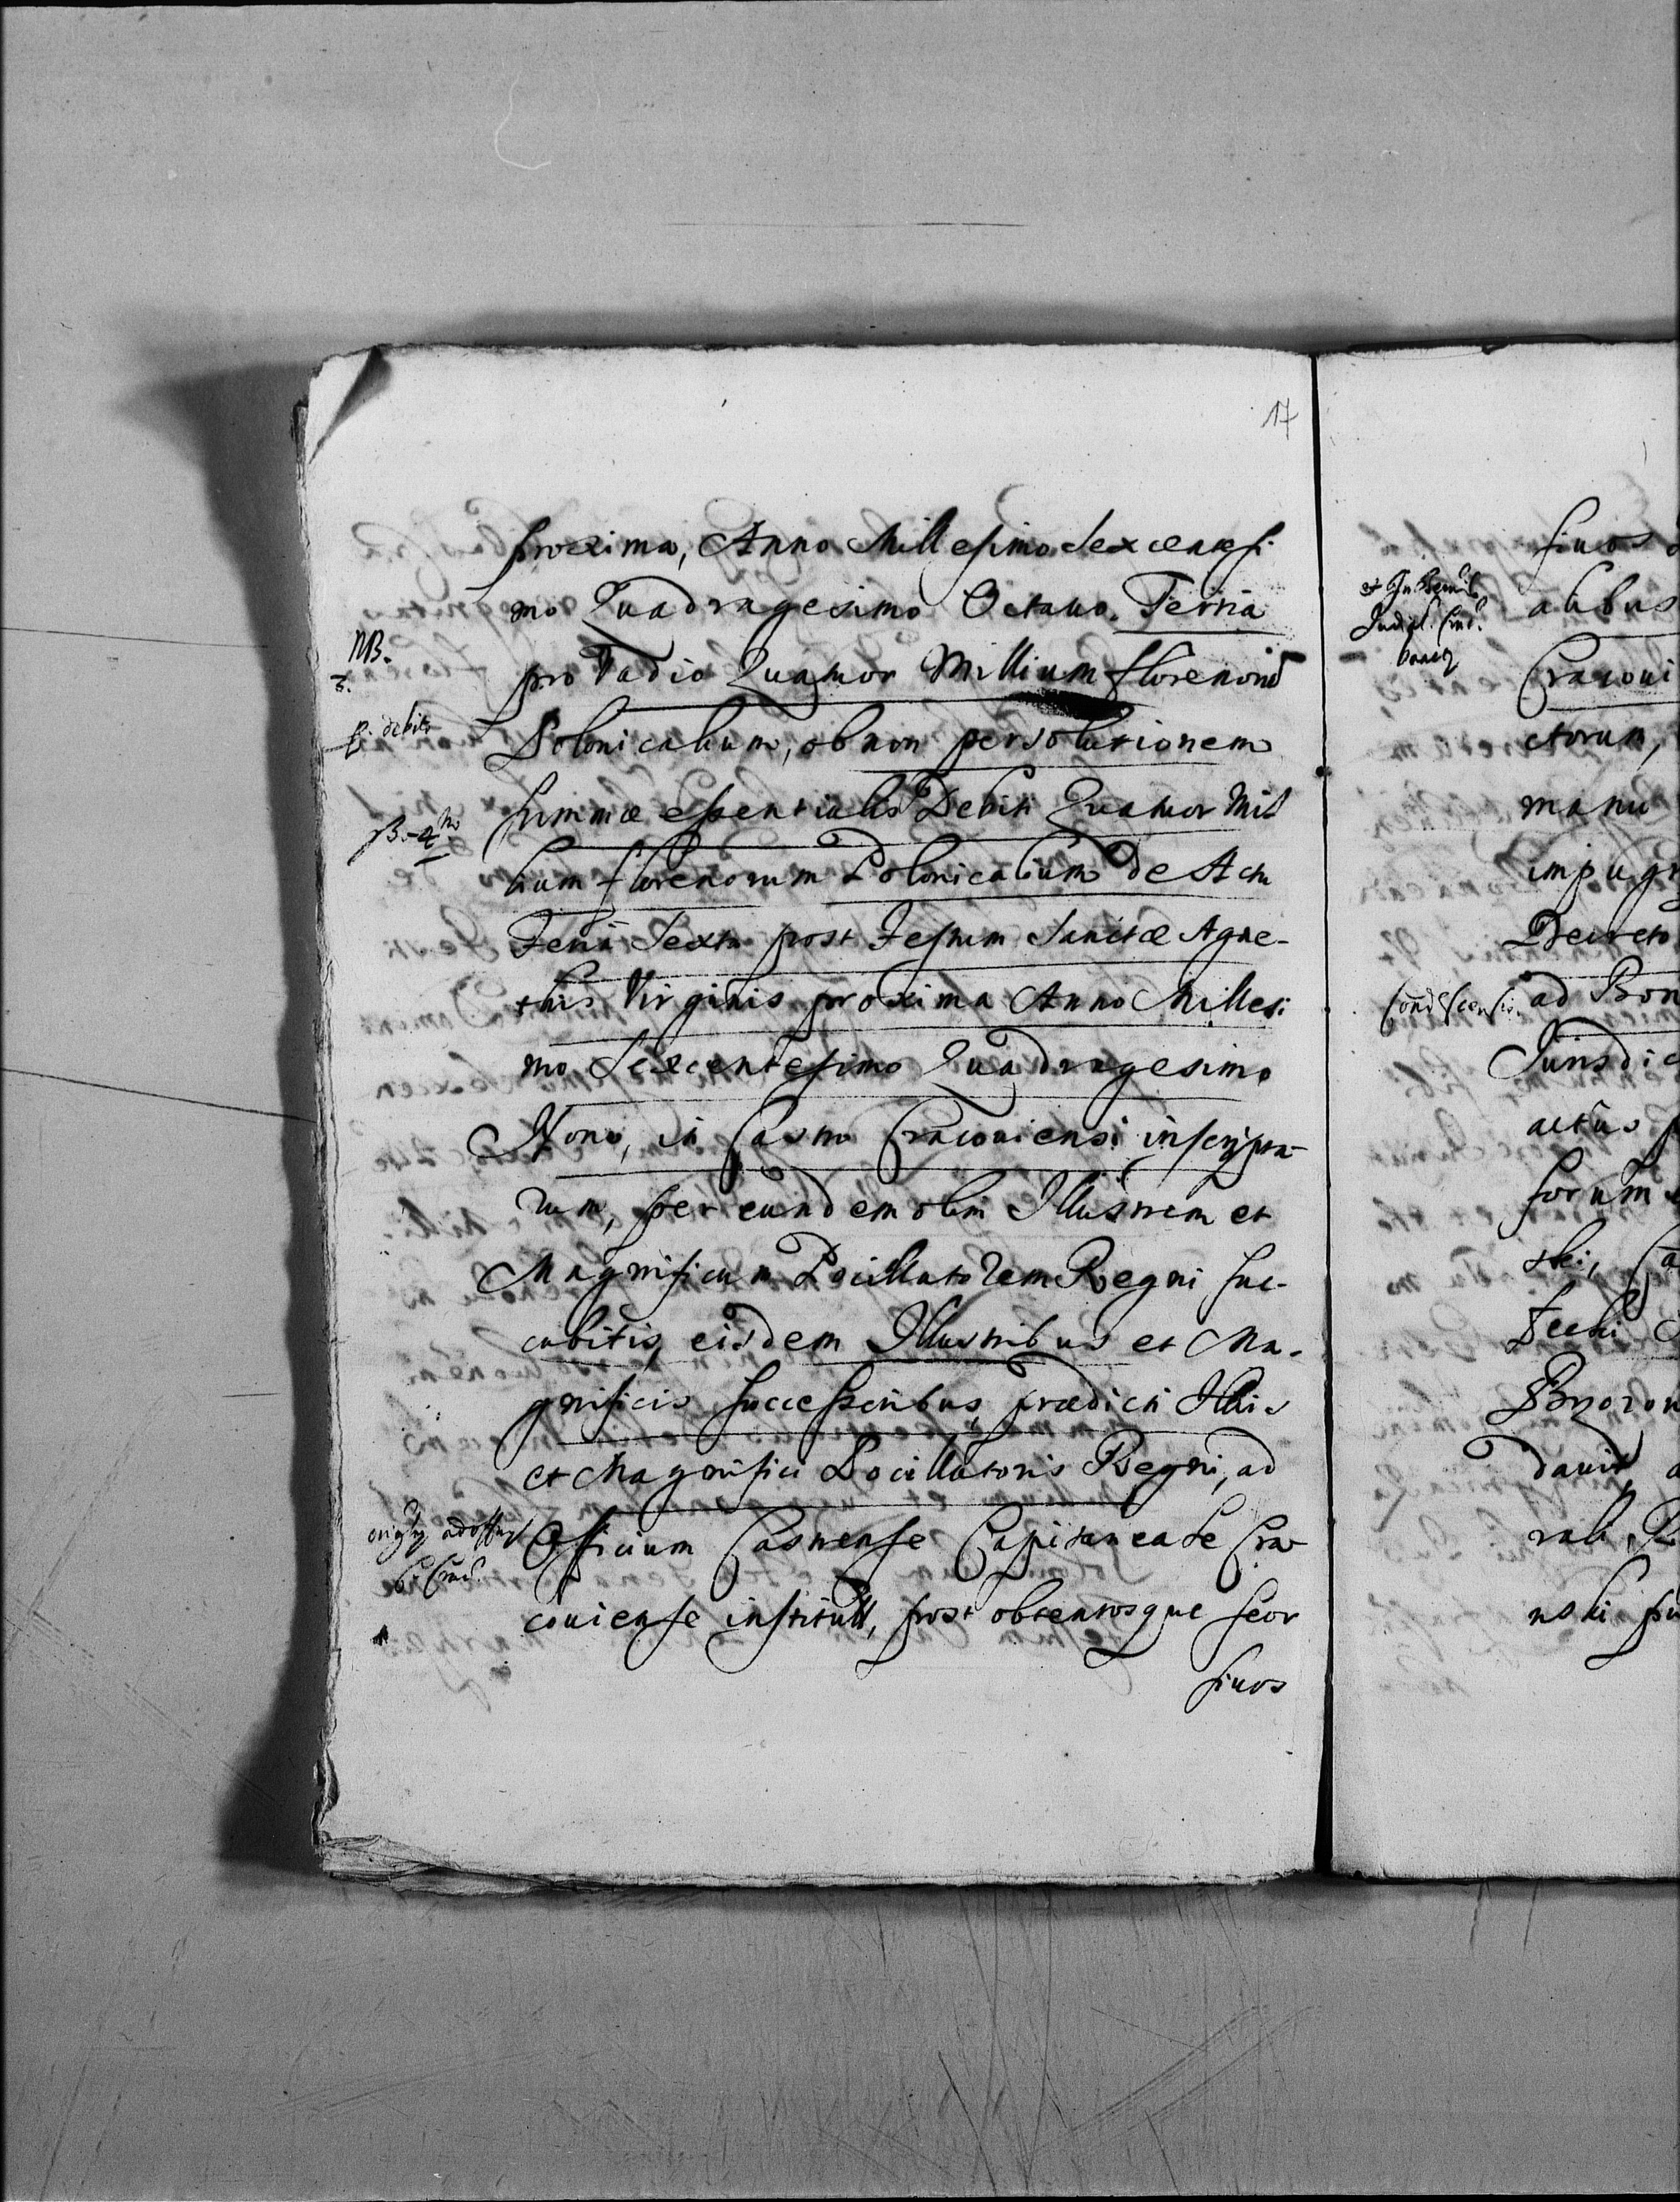 17
proxima, Anno Millesimo Sexcentesi
mo Quadragesimo Octauo. Tertia
NB.
3.
pro Vadio Quatuor Millium florenorũ
debiti
Polonicalium, ob non persolutionem
summæ essentialis Debiti Quatuor Mil
lium florenorum Polonicalium de Actu
Feria Sexta post Festum Sanctæ Agne-
this Virginis proxima Anno Millesi
mo Sexcentesimo Quadragesimo
Nono, in Castro Cracouiensi inscripta-
rum, per eundem olim Illustrem et
Magnificum Pocillatorem Regni suc-
cubitis, eisdem Illustribus et Ma-
gnificis successoribus, prædicti Illris
et Magnifici Pocillatoris Regni, ad
Officium Castrense Capitaneale Cra
couiense instituit, post obtentosque feor
siuos
siuos
alibus
Craconi
ctorum,
manu
impugn
Decreto
Condescensio.
ad Bon
Jurisdic
actus
forum
ski, Ca
Brzozow
dauit,
rali,
nski